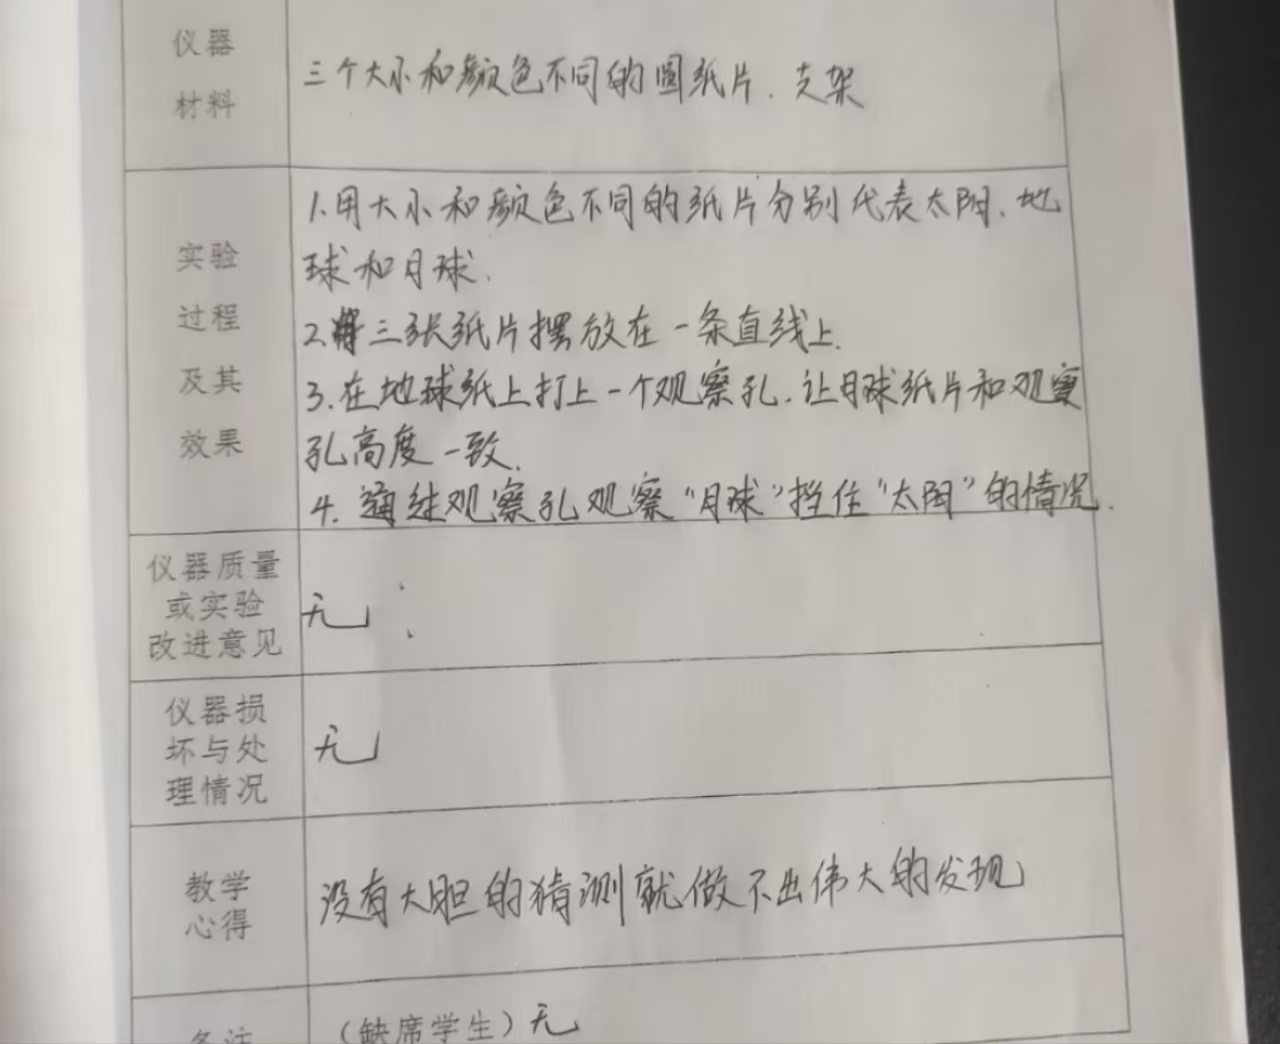 仪器
材料
三个大小和颜色不同的圆纸片、支架
实验
过程
及其
效果
1.用大小和颜色不同的纸片分别代表太阳、地
球和月球.
2.将三张纸片摆放在一条直线上.
3.在地球纸上打上一个观察孔.让月球纸片和观察
孔高度一致.
4.通过观察孔观察“月球”挡住“太阳”的情况.
仪器质量
或实验
改进意见
无
仪器损
坏与处
理情况
无
教学
心得
没有大胆的猜测就做不出伟大的发现
备注
（缺席学生）无